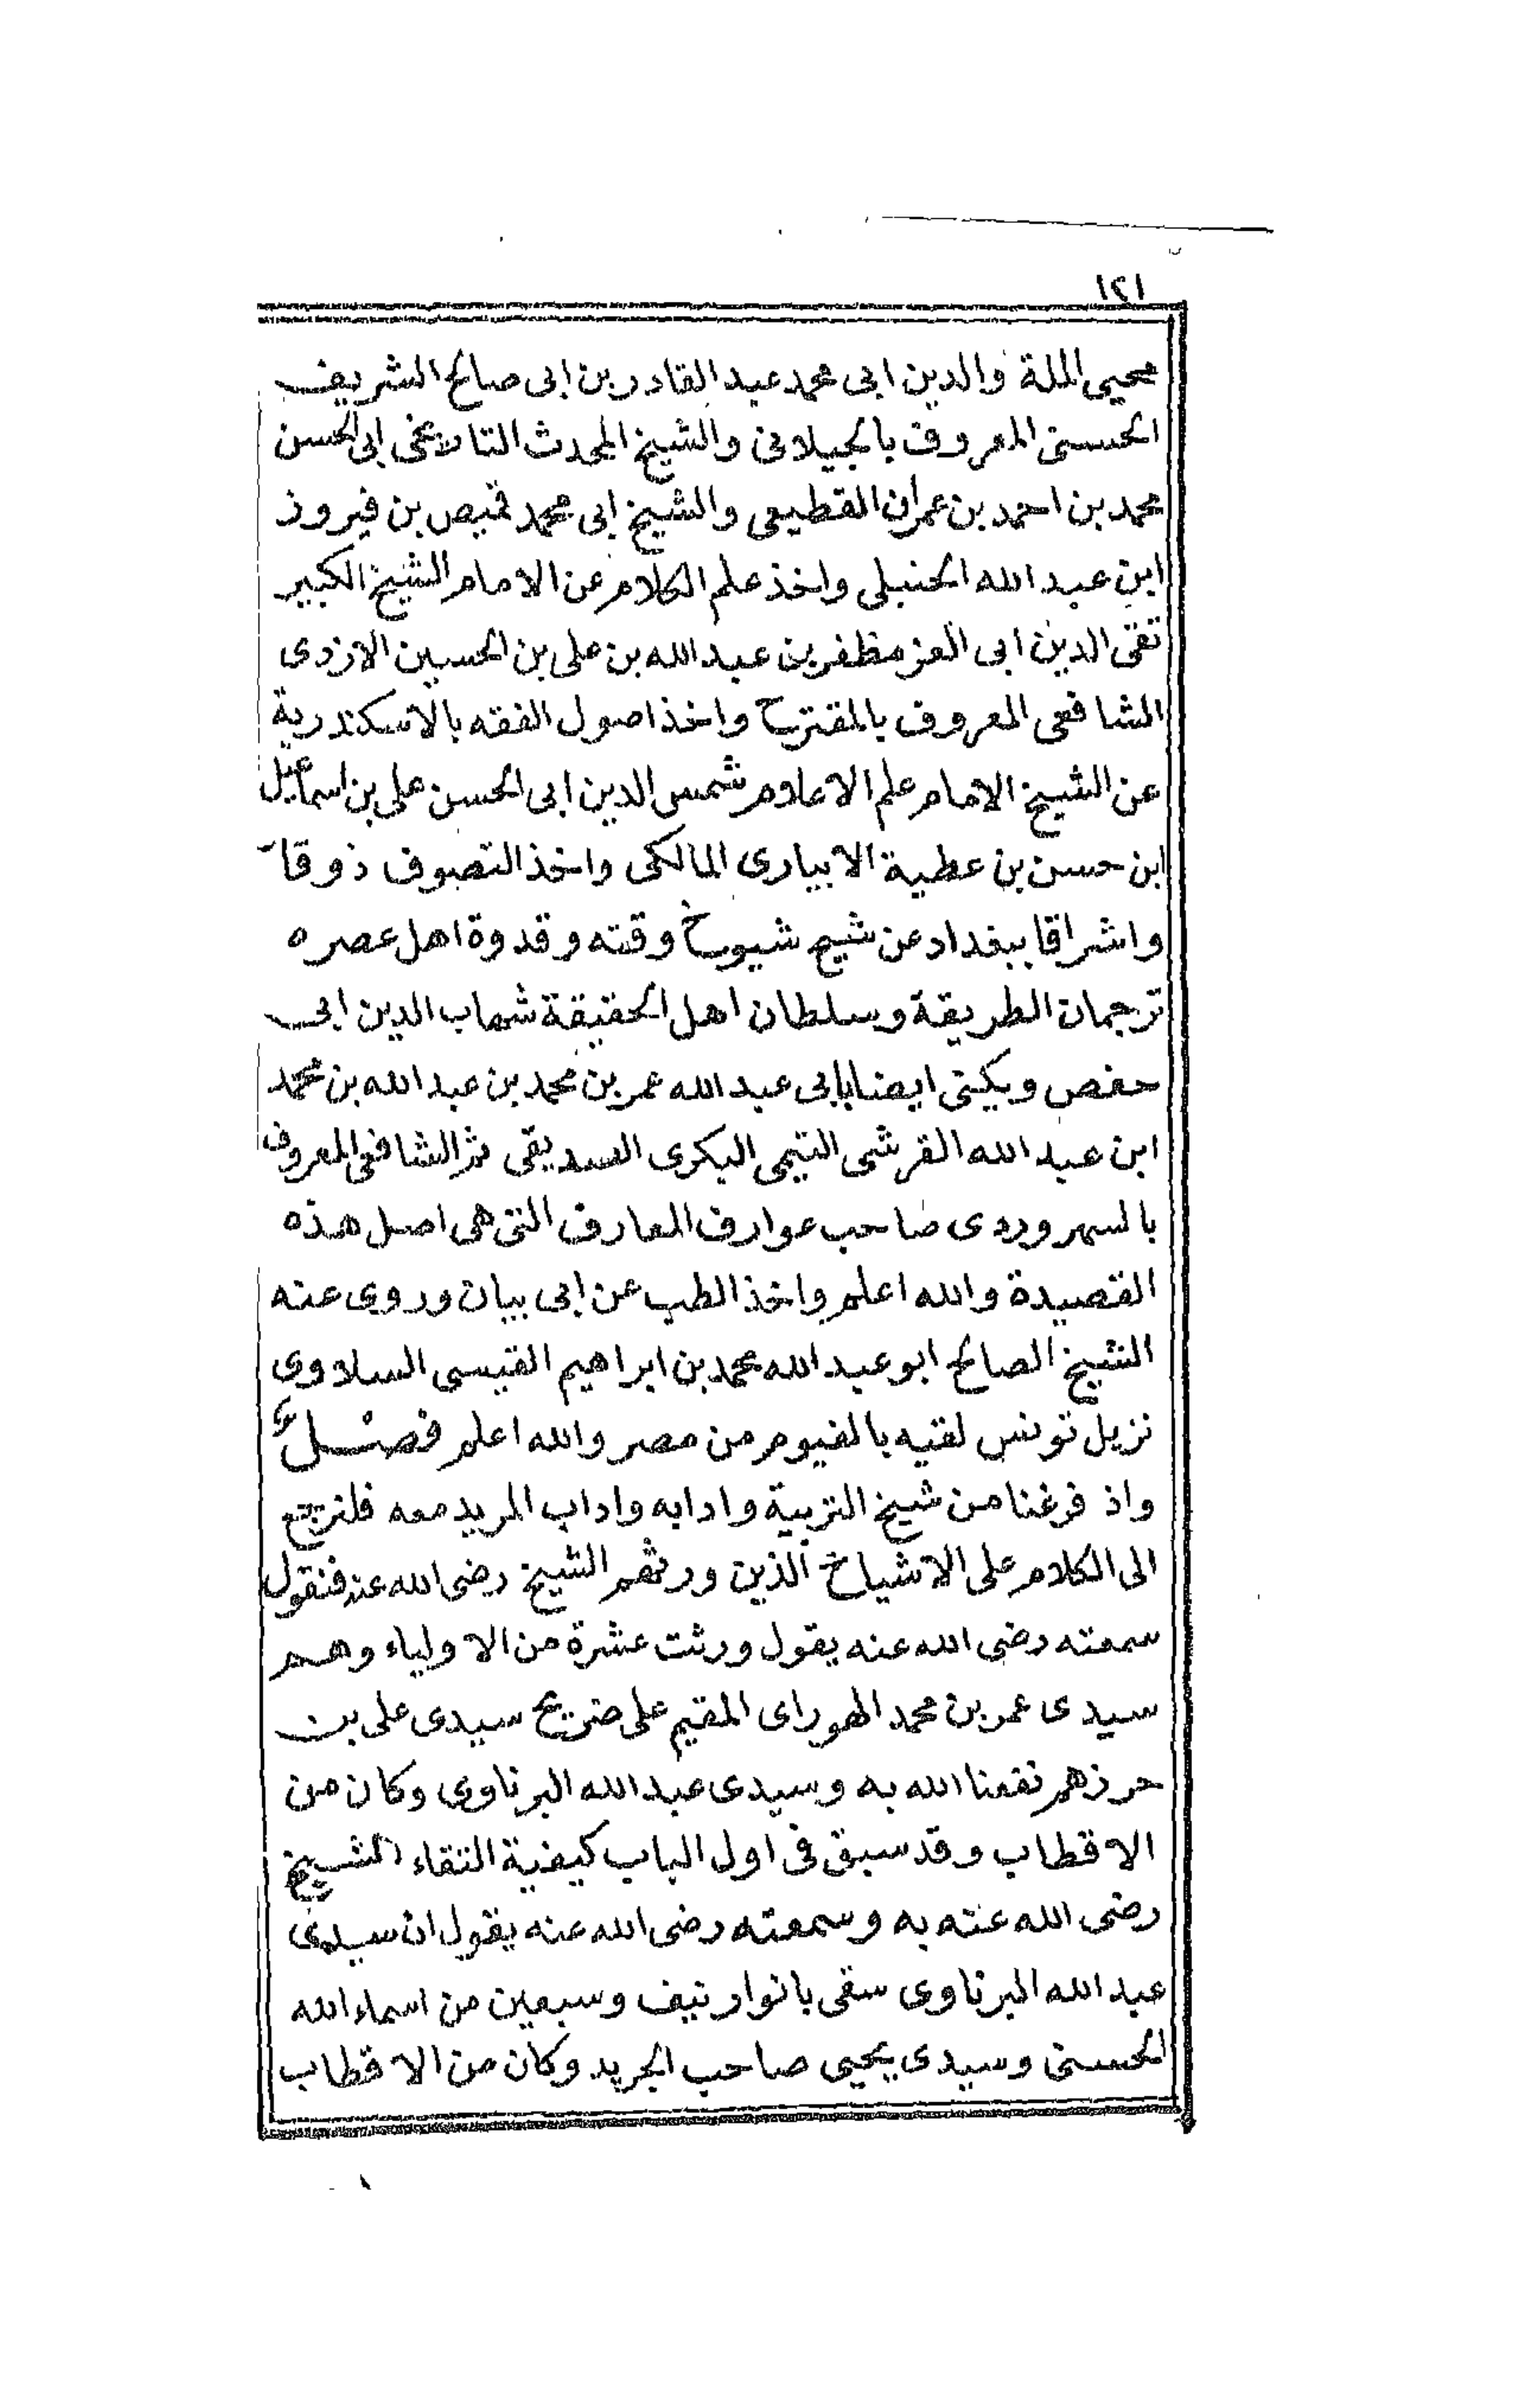 ١٢١
محيى الملة والدين ابى محمد عبد القادر بن ابى صالح الشريف
الحسنى المعروف بالجيلانى والشيخ المحدث التاريخى ابى الحسن
محمد بن احمد بن عمران القطيعى والشيخ ابى محمد قميص بن فيروز
ابن عبد الله الحنبلى واخذ علم الكلام عن الامام الشيخ الكبير
تقى الدين ابى العز مظفر بن عبد الله بن على بن الحسين الازدى
الشافعى المعروف بالمقترح واخذ اصول الفقه بالاسكندرية
عن الشيخ الامام علم الاعلام شمس الدين ابى الحسن على بن اسماعيل
ابن حسن بن عطية الابيارى المالكى واخذ التصوف ذوقا
واشراقا ببغداد عن شيخ شيوخ وقته وقدوة اهل عصره
ترجمان الطريقة وسلطان اهل الحقيقة شهاب الدين ابى
حفص ويكنى ايضا بابى عبد الله عمر بن محمد بن عبد الله بن محمد
ابن عبد الله القرشى التيمى البكرى الصديقى ثم الشافعى المعروف
بالسهروردى صاحب عوارف المعارف التى هى اصل هذه
القصيدة والله اعلم واخذ الطب عن ابى بيان وروى عنه
الشيخ الصالح ابو عبد الله محمد بن ابراهيم القيسى السلاوى
نزيل تونس لقيه بالفيوم من مصر والله اعلم فصل
واذ فرغنا من شيخ التربية وادابه واداب المريد معه فلنرجع
الى الكلام على الاشياخ الذين ورثهم الشيخ رضى الله عنه فنقول
سمعته رضى الله عنه يقول ورثت عشرة من الاولياء وهم
سيدى عمر بن محمد الهوراى المقيم على ضريح سيدى على بن
حرزهم نفعنا الله به وسيدى عبد الله البرناوى وكان من
الاقطاب وقد سبق فى اول الباب كيفية التقاء الشيخ
رضى الله عنه به وسمعته رضى الله عنه يقول ان سيدى
عبد الله البرناوى سقى بانوار نيف وسبعين من اسماء الله
الحسنى وسيدى يحيى صاحب الجريد وكان من الاقطاب